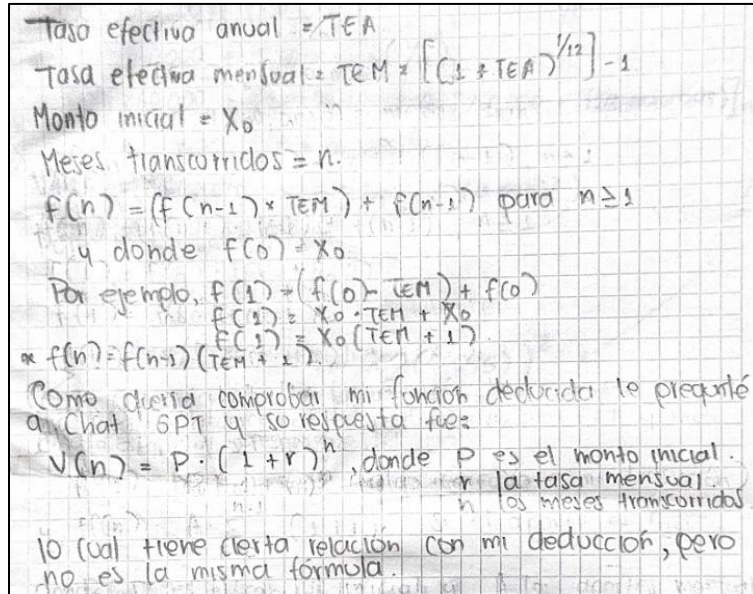 Tasa efectiva anual = TEA
Tasa efectiva mensual = TEM = [(1 + TEA)^1/12] - 1
Monto inicial = X₀
Meses transcurridos = n.
f(n) = (f(n-1) * TEM) + f(n-1) para n ≥ 1
y donde f(0) = X₀
Por ejemplo, f(1) = (f(0) · TEM) + f(0)
f(1) = X₀ · TEM + X₀
f(1) = X₀ (TEM + 1)
* f(n) = f(n-1) (TEM + 1).
Como quería comprobar mi función deducida le pregunté
a Chat GPT y su respuesta fue:
V(n) = P · (1 + r)^n, donde P es el monto inicial.
r la tasa mensual.
n los meses transcurridos
lo cual tiene cierta relación con mi deducción, pero
no es la misma fórmula.